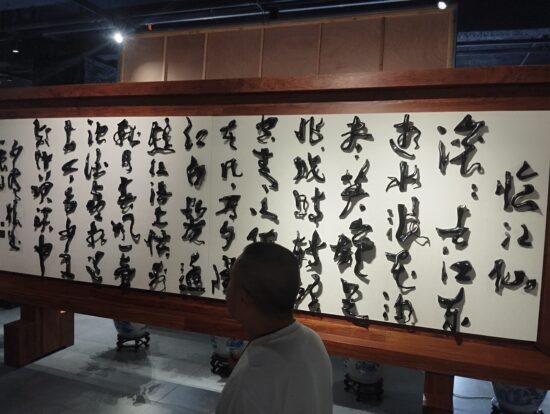 临江仙
滚滚长江东
逝水浪花淘
尽英雄是
非成败转头
空青山依
在几度夕
红白发渔
樵江渚上惯看
秋月春风一壶
浊酒喜相逢
古今多少事
都付笑谈中